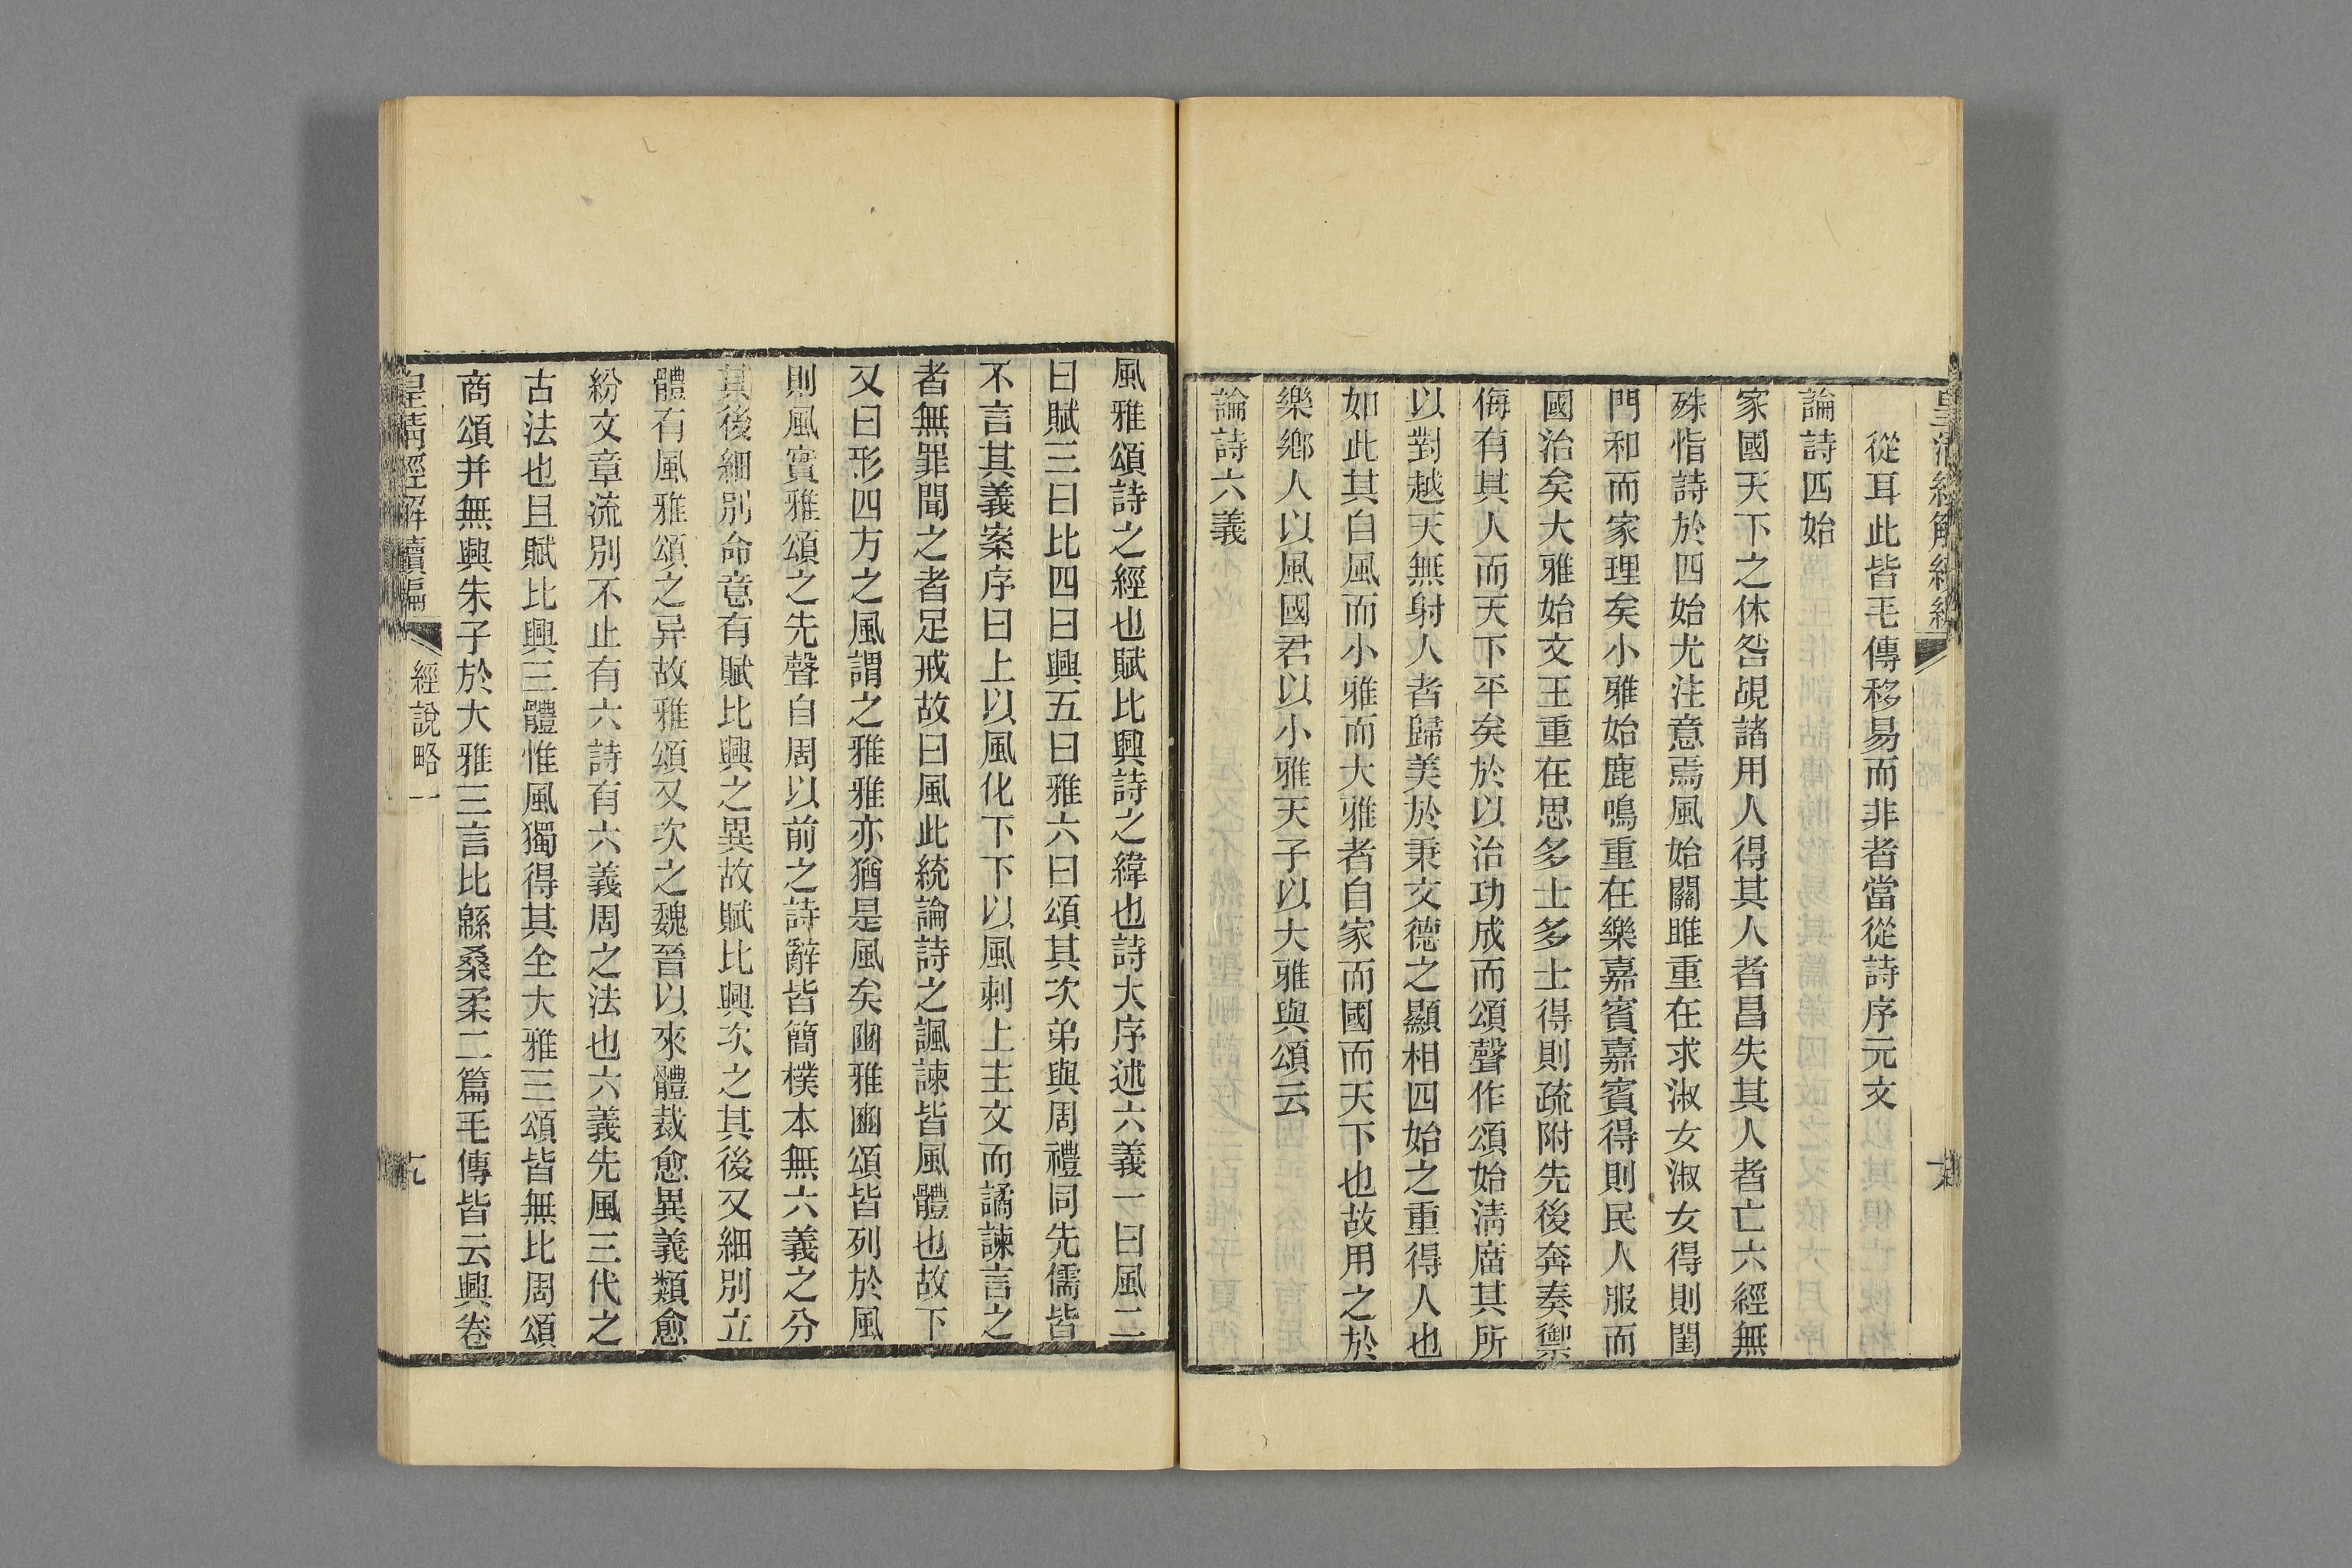 從耳此皆毛傳移易而非者當從詩序元文
論詩四始
家國天下之休咎覘諸用人得其人者昌失其人者亡六經無
殊恉詩於四始尤注意焉風始關雎重在求淑女淑女得則閨
門和而家理矣小雅始鹿鳴重在樂嘉賓嘉賓得則民人服而
國治矣大雅始文王重在思多士多士得則疏附先後奔奏禦
侮有其人而天下平矣於以治功成而頌聲作頌始清廟其所
以對越天無射人者歸美於秉文德之顯相四始之重得人也
如此其自風而小雅而大雅者自家而國而天下也故用之於
樂鄉人以風國君以小雅天子以大雅與頌云
論詩六義
風雅頌詩之經也賦比興詩之緯也詩大序述六義一曰風二
曰賦三曰比四曰興五曰雅六曰頌其次弟與周禮同先儒皆
不言其義案序曰上以風化下下以風刺上主文而譎諫言之
者無罪聞之者足戒故曰風此統論詩之諷諫皆風體也故下
又曰形四方之風謂之雅雅亦猶是風矣豳雅豳頌皆列於風
則風實雅頌之先聲自周以前之詩辭皆簡樸本無六義之分
其後細別命意有賦比興之異故賦比興次之其後又細別立
體有風雅頌之异故雅頌又次之魏晉以來體裁愈異義類愈
紛文章流別不止有六詩有六義周之法也六義先風三代之
古法也且賦比興三體惟風獨得其全大雅三頌皆無比周頌
商頌并無興朱子於大雅三言比緜桑柔二篇毛傳皆云興卷
皇清經解續編
經說略一